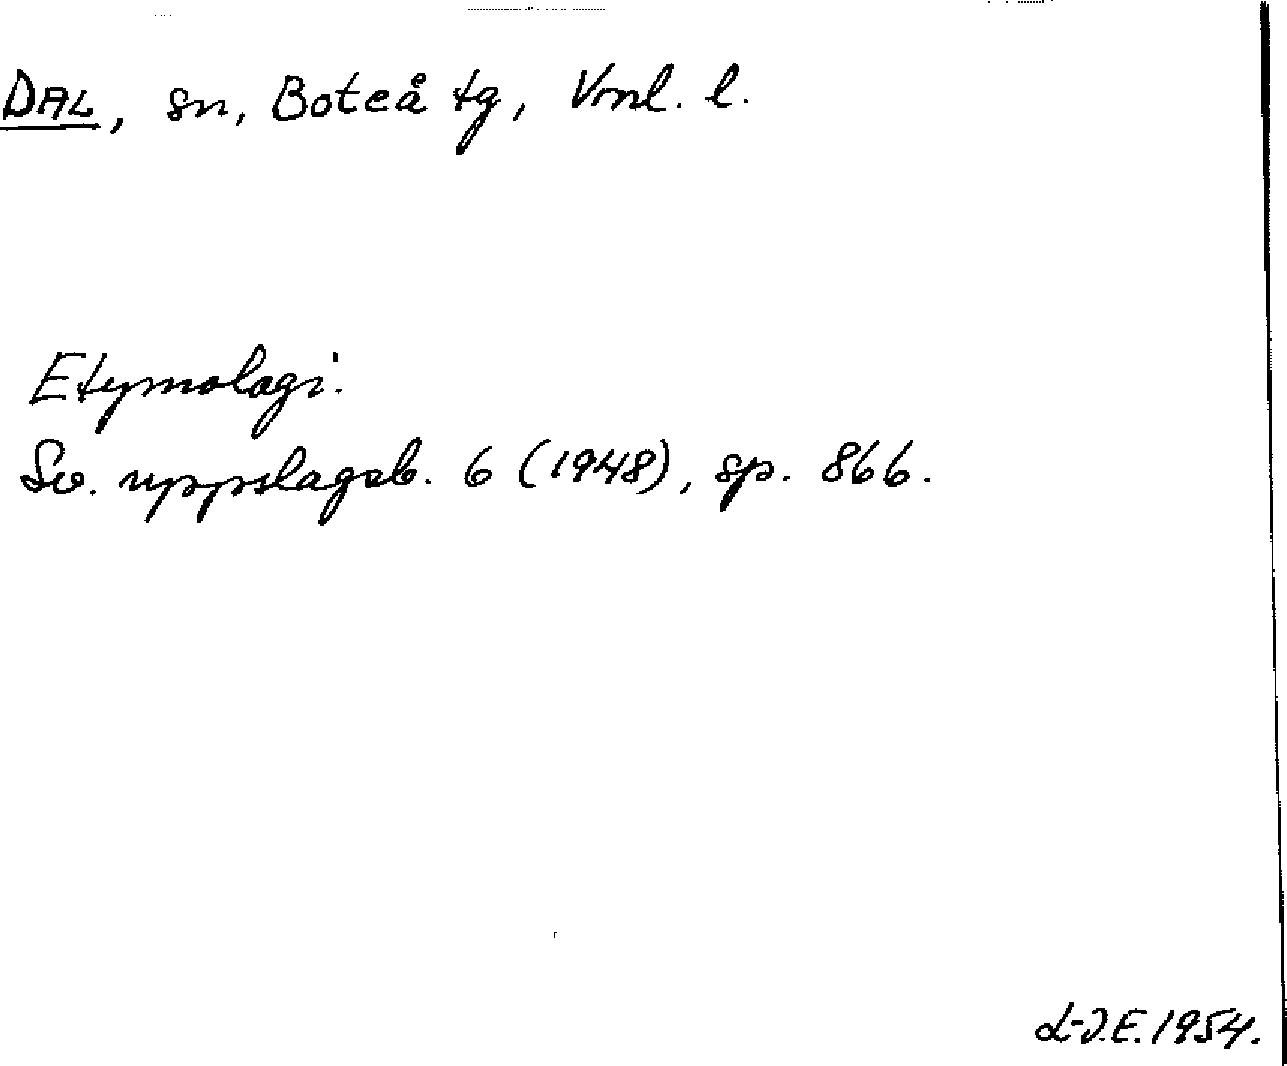 DAL, sn, Boteå tg, Vrnl. l.
Etymologi:
Sv. uppslagsb. 6 (1948), sp. 866.
L-J.E. 1954.